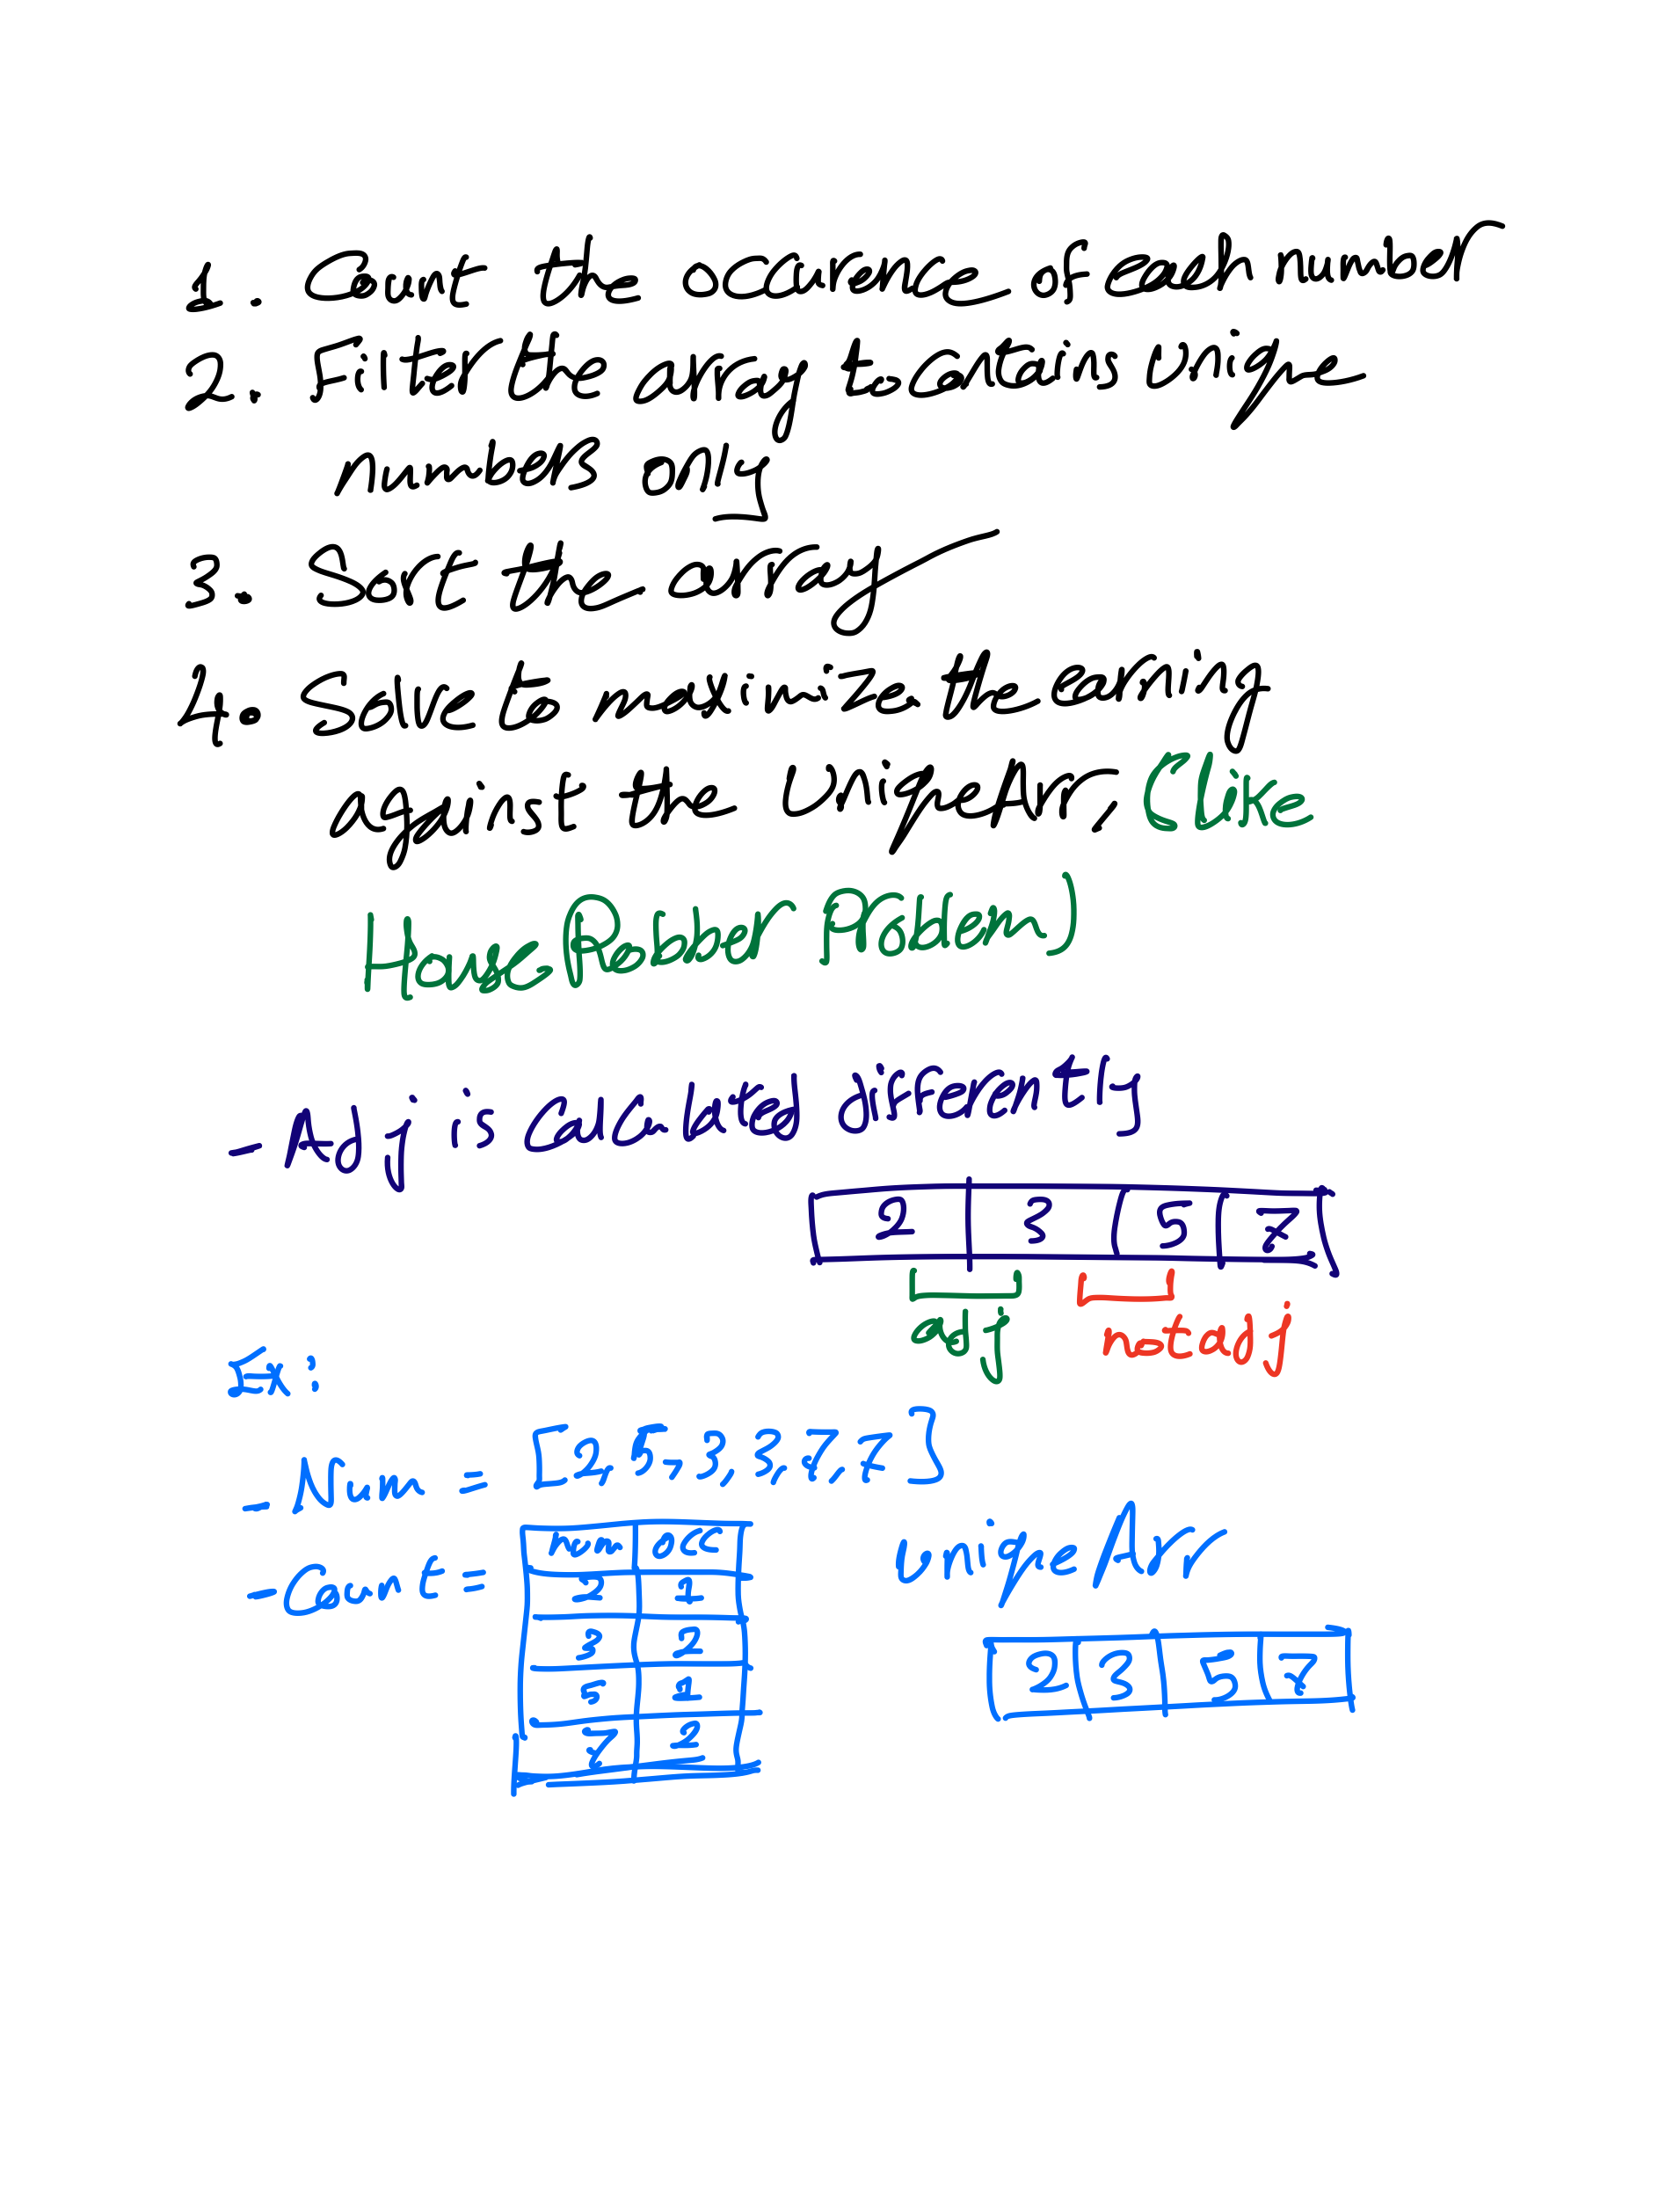 1. Count the occurence of each number
2. Filter the array to contains unique
numbers only
3. Sort the array
4. Solve to maximize the earning
against the UniqeArr, (like
House Robber Problem)
- Adj is calculated differently
2 3 5 7
adj not adj
Ex:
- Num = [2, 5, 3, 3, 7, 7]
- Count = Num OCC
2 1
3 2
5 1
7 2
uniqeArr
2 3 5 7